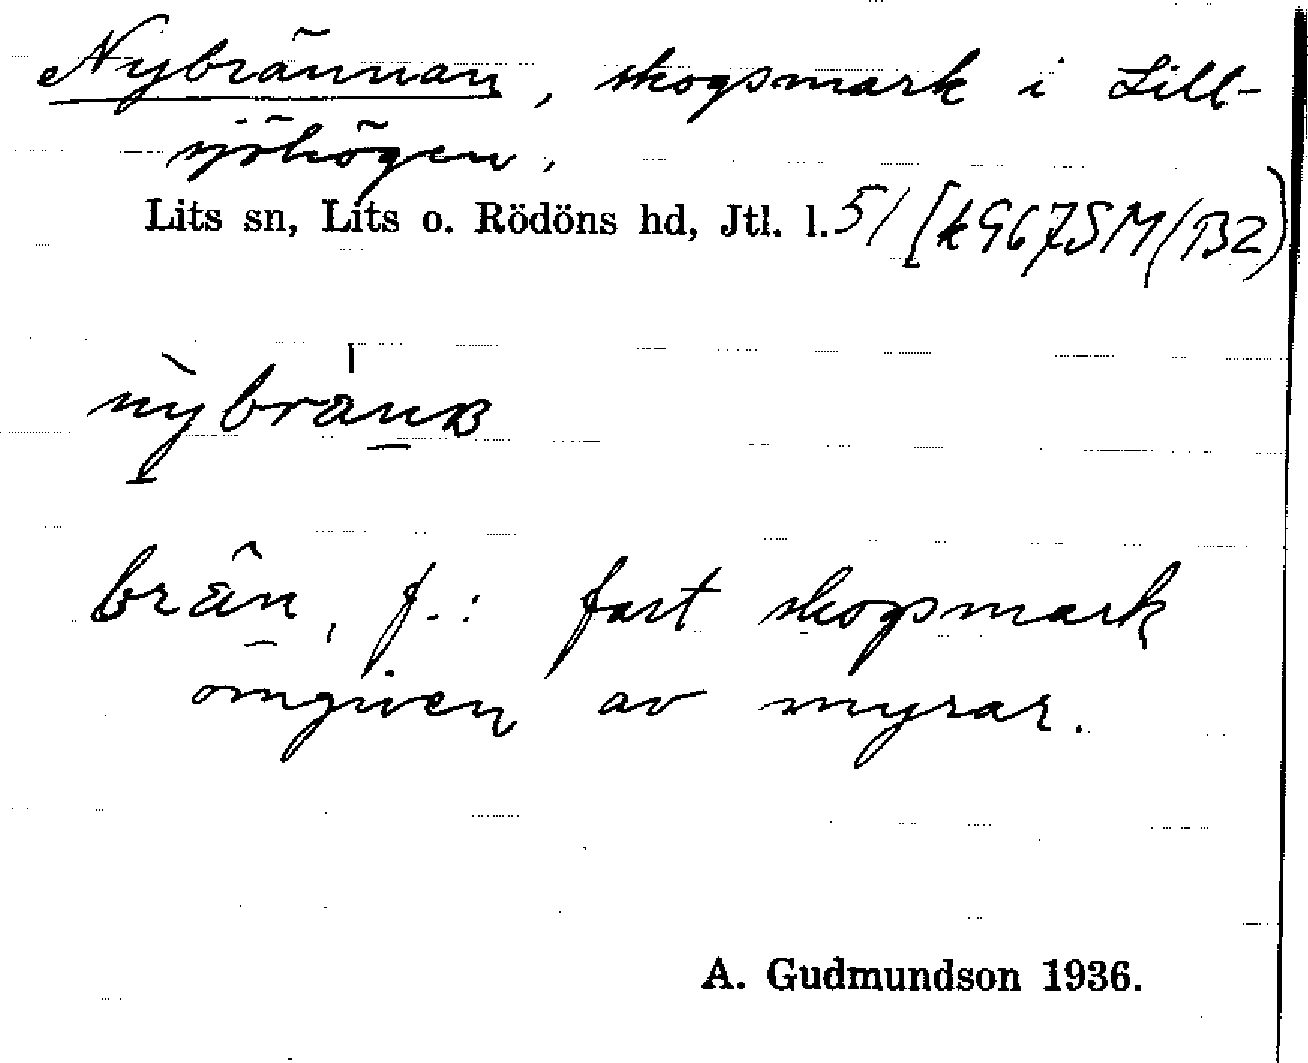 Nybrännan, skogsmark i Lill-
sjöhögen,
Lits sn, Lits o. Rödöns hd, Jtl. l. 51 [k G67SM (B2)
brän, f.: fast skogsmark
omgiven av myrar.
A. Gudmundson 1936.